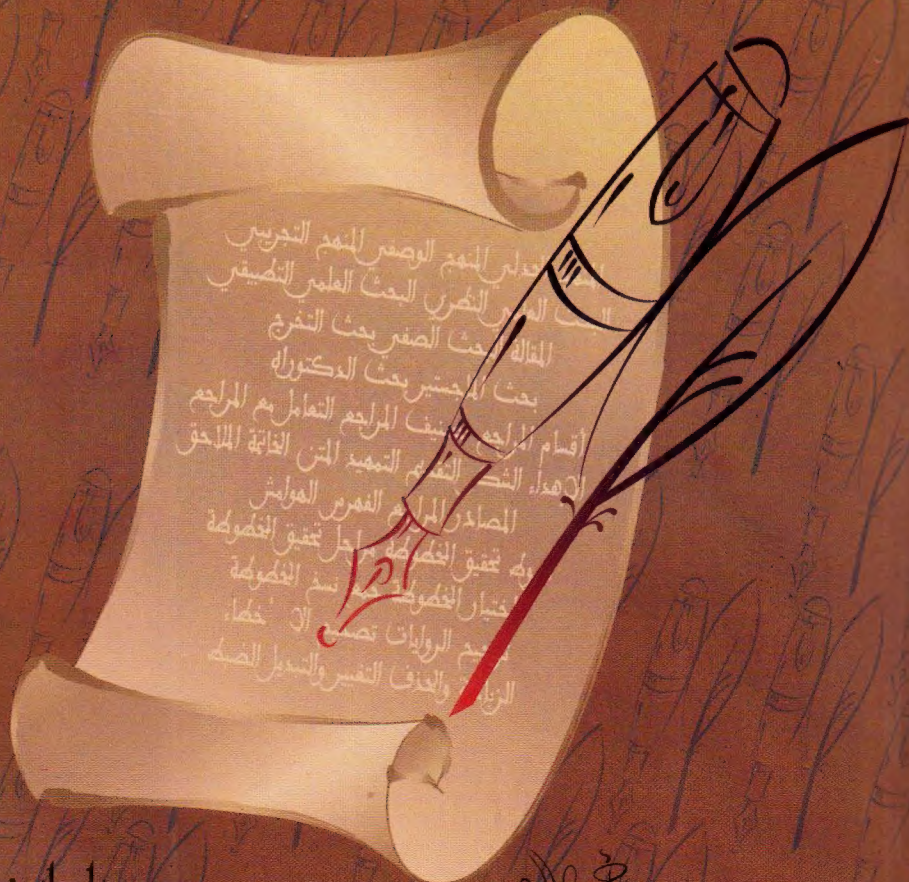 الجدلي المنهج الوصفي المنهج التجريبي
البحث العلمي النظري البحث العلمي التطبيقي
المقالة البحث الصفي بحث التخرج
بحث الماجستير بحث الدكتوراه
أقسام المراجع تصنيف المراجع التعامل مع المراجع
الإهداء الشكر التقديم التمهيد المتن الخاتمة الملاحق
المصادر المراجع الفهرس الهوامش
تحقيق المخطوطة مراحل تحقيق المخطوطة
اختيار المخطوطة نسخ المخطوطة
الروايات الأخطاء
الزيادة والحذف التفسير والتبديل الضبط